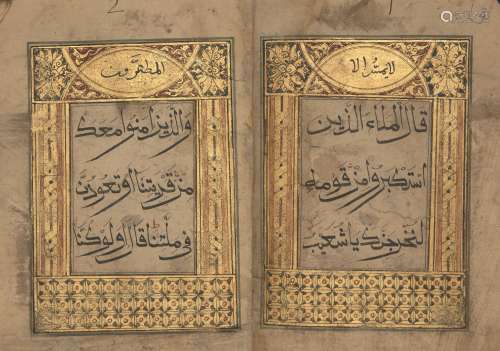 لا يمسه الا
قال الملاء الذين
استكبروا من قومه
لنخرجنك يا شعيب
المطهرون
والذين امنوا معك
من قريتنا او تعودن
في ملتنا قال اولو كنا